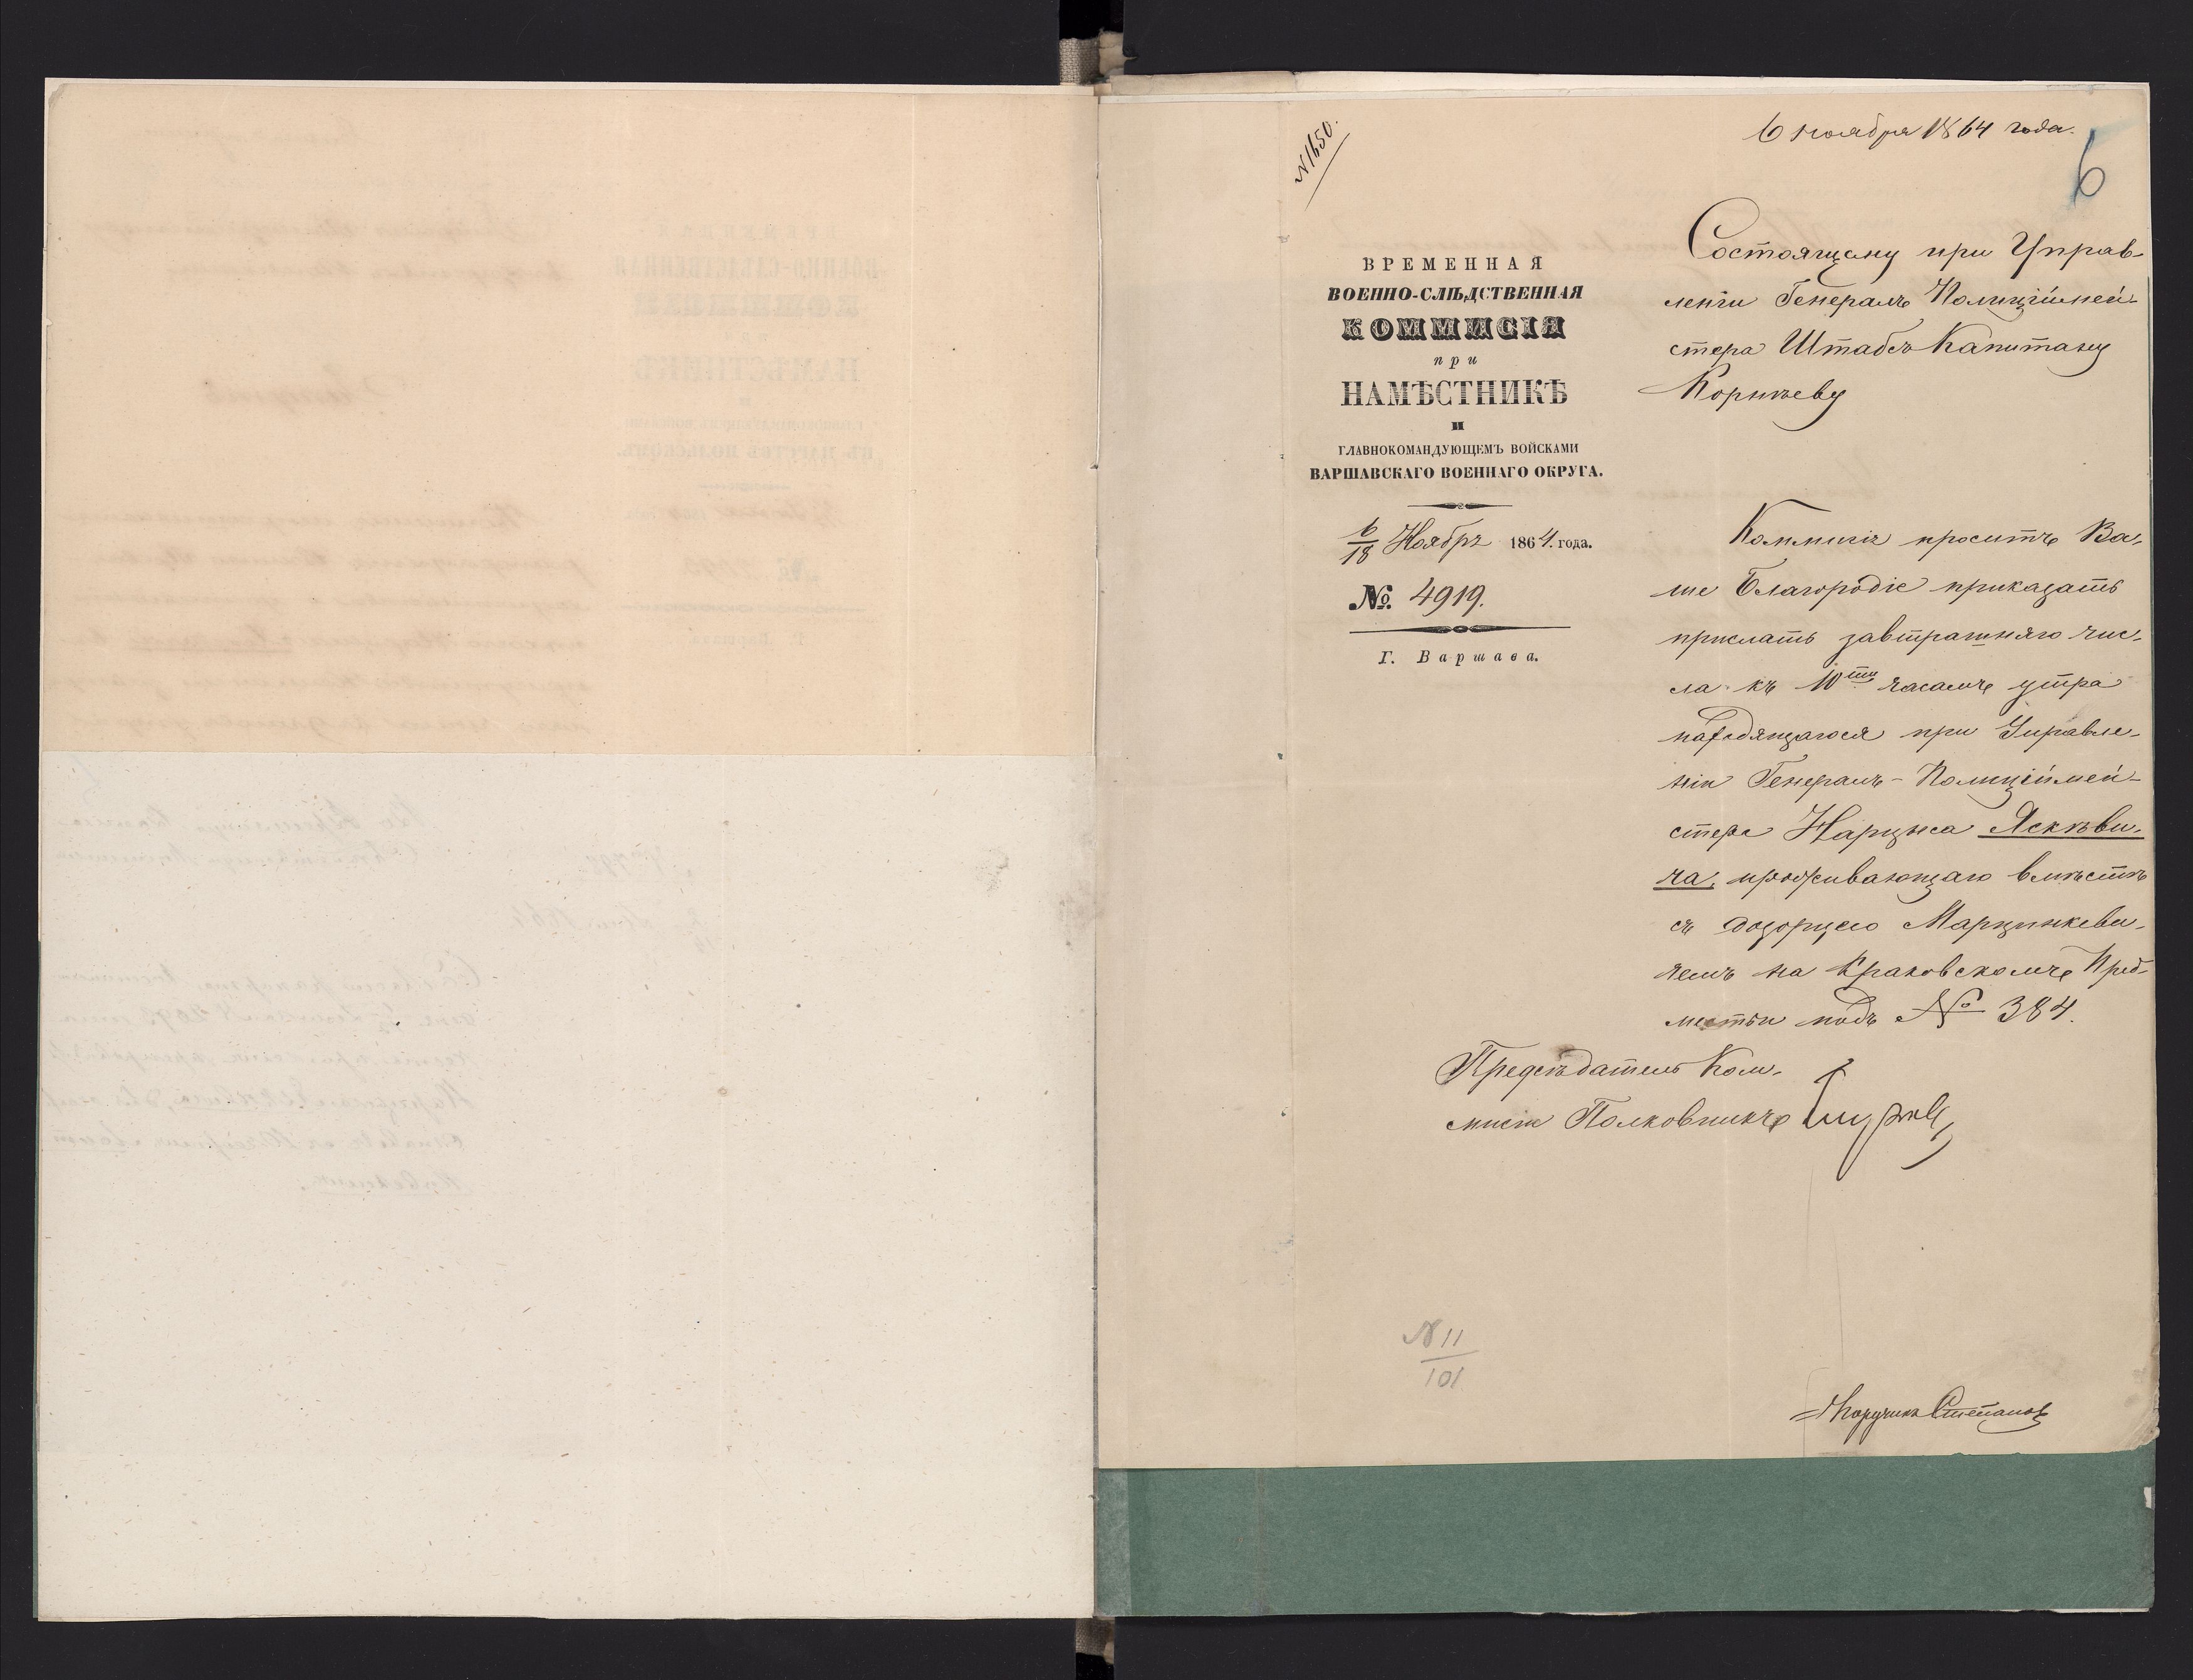 № 1650.
6 ноября 1864 года.
6
ВРЕМЕННАЯ
ВОЕННО-СЛѢДСТВЕННАЯ
КОММИСІЯ
при
НАМѢСТНИКѢ
и
ГЛАВНОКОМАНДУЮЩЕМЪ ВОЙСКАМИ
ВАРШАВСКАГО ВОЕННАГО ОКРУГА.
6/18 Ноября 1864. года.
№. 4919.
Г. Варшава.
Состоящему при Управ-
леніи Генералъ Полиціймей-
стера Штабсъ Капитану
Корнѣеву
Коммисія проситъ Ва-
ше Благородіе приказать
прислать завтрашняго чис-
ла къ 10ти часамъ утра
находящагося при Управле-
ніи Генералъ-Полиціймей-
стера Нарциса Яскѣви-
ча, проживающаго вмѣстѣ
съ дозорцею Марцинкеви-
чемъ на Краковскомъ Пред-
местьи подъ № 384.
Предсѣдатель Ком-
мисіи Полковникъ
№ 11
101
Поручикъ Степановъ